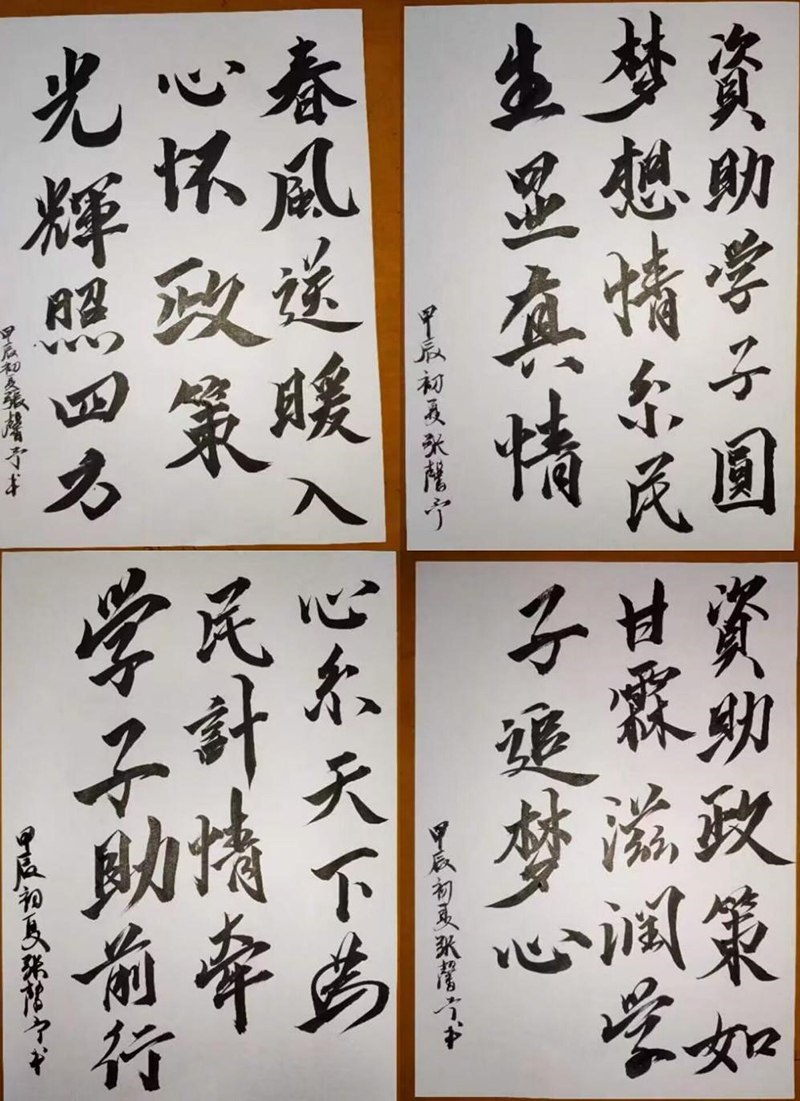 春風送暖入
心怀政策
光輝照四方
甲辰初夏張馨予书
資助学子圓
梦想情系民
生显真情
甲辰初夏张馨予
心系天下為
民計情牵
学子助前行
甲辰初夏张馨予书
資助政策如
甘霖滋润学
子追梦心
甲辰初夏张馨予书